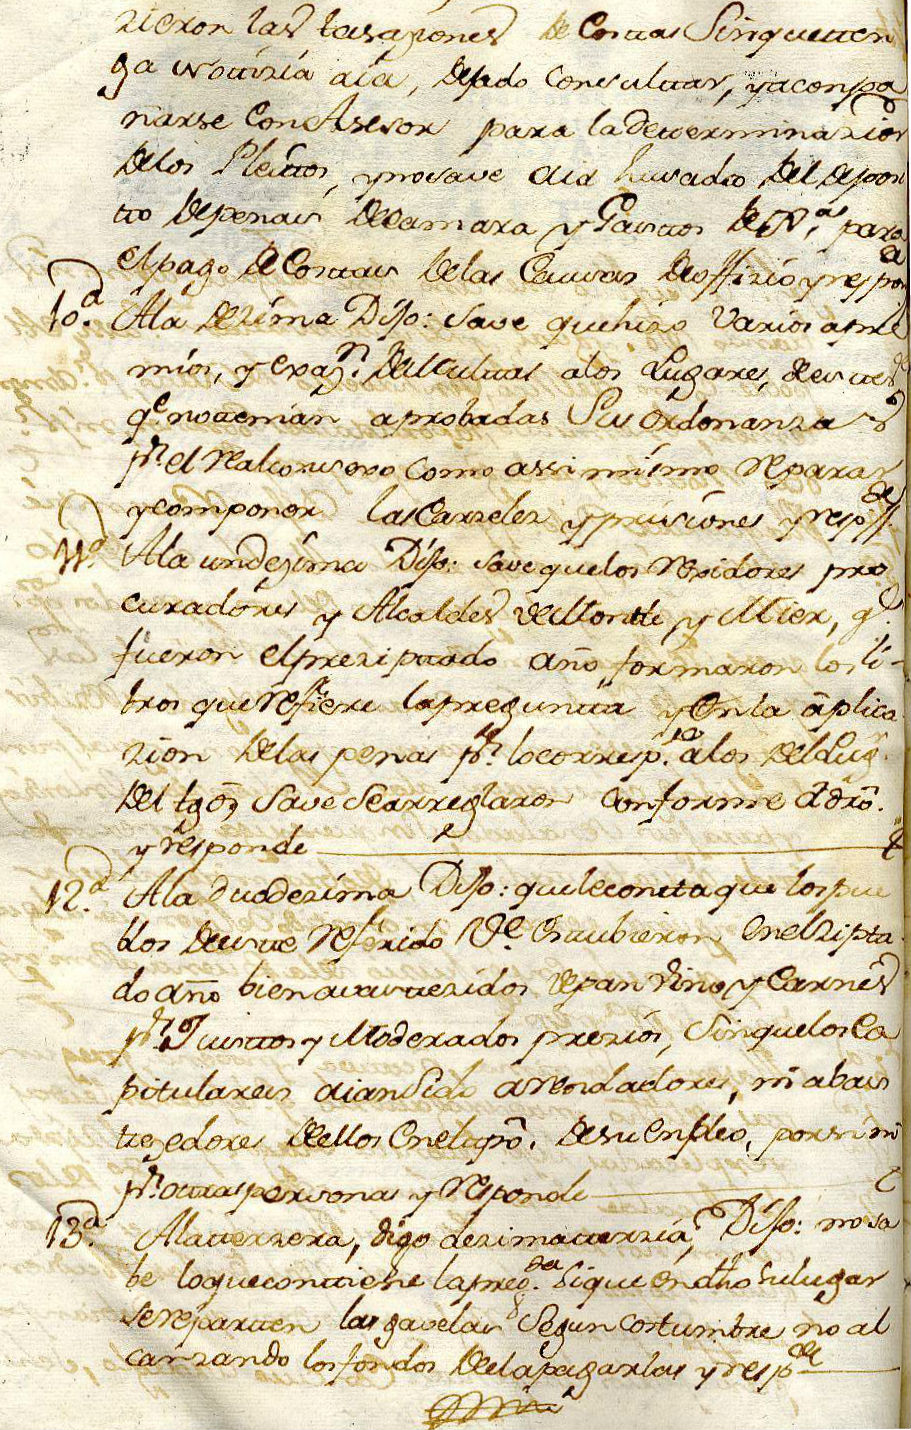 zieron las tasaziones de Costas Sin que tten
ga notizia aia, dejado Consultar, y acompa
ñarse Con Asesor para la determinazion
de los Pleitos, y no save aia husado del deposi
tto de penas de Camara y Gastos de
el pago de Costas de las Causas de offizio y respon
10.ª A la dezima Dijo: save que hizo varios apre
mios, y exaz.n de Multas a los Lugares, de este
q.e no ttenian aprobadas Sus ordenanzas
p.r el Real consexo como assi mismo reparar
y componer las Carzeles y prisiones y resp.de
11.ª A la undezima Dijo: save que los rexidores pro
curadores y Alcaldes de Monte, y Mier, q.e
fueron el prezipttado año, formaron los li-
bros que refiere la pregunta y En la aplica
zion de las penas p.r lo corresp.te a los del Lug.r
del tgo, save se arreglaron conforme a dro.
y responde
12.ª A la duodezima Dijo: que le consta que los pue
blos de este referido Ve. Estubieron en el zipta
do año bien avastezidos de pan vino y Carnes
p.r Justtos y Moderados prezios, Sin que los Ca
pitulares aian Sido arrendadores, ni abas
tezedores de ellos en el tpo. de su Empleo, por si ni
p.r otras personas y responde
13.ª A la terzera, digo dezimaterzia, Dijo: no sa
be lo que conttiene la preg.ta si que en dho su lugar
se reparten las gavelas Segun costumbre no al
canzando los fondos de el a pagarlas y resp.de